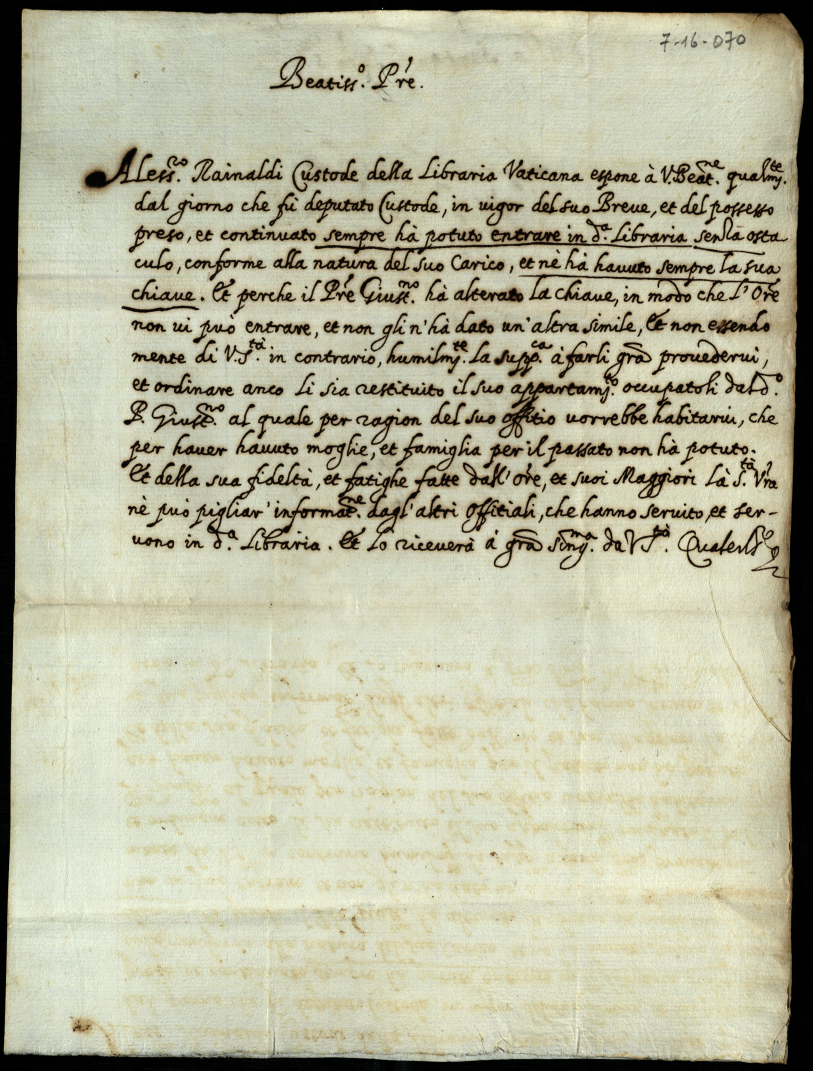 7-16-070
Beatiss.º Pre.
Aless.ro Rainaldi Custode della Libraria Vaticana espone à V. Beat.ne qualm.te
dal giorno che fù deputato Custode, in vigor del suo Breve, et del possesso
preso, et continuato sempre hà potuto entrare in d.ª Libraria senza osta
culo, conforme alla natura del suo Carico, et nè hà havuto sempre la sua
chiave. Et perche il Pre Giust.no hà alterato la chiave, in modo che l'Ore
non vi può entrare, et non gli n'hà dato un'altra simile, Et non essendo
mente di V. S.tà in contrario, humilm.te la supp.ca à farli gra provedervi,
et ordinare anco li sia restituito il suo appartam.to occupatoli dal d.º
P. Giust.no al quale per ragion del suo offitio vorrebbe habitarvi, che
per haver havuto moglie, et famiglia per il passato non hà potuto.
Et della sua fideltà, et fatighe fatte dall'Ore, et suoi Maggiori Là S.tà Vra
nè può pigliar' informat.ne dagl'altri offitiali, che hanno servito, et ser-
vono in d.ª Libraria. Et lo riceverà à gra sing.ma da V. S.tà.